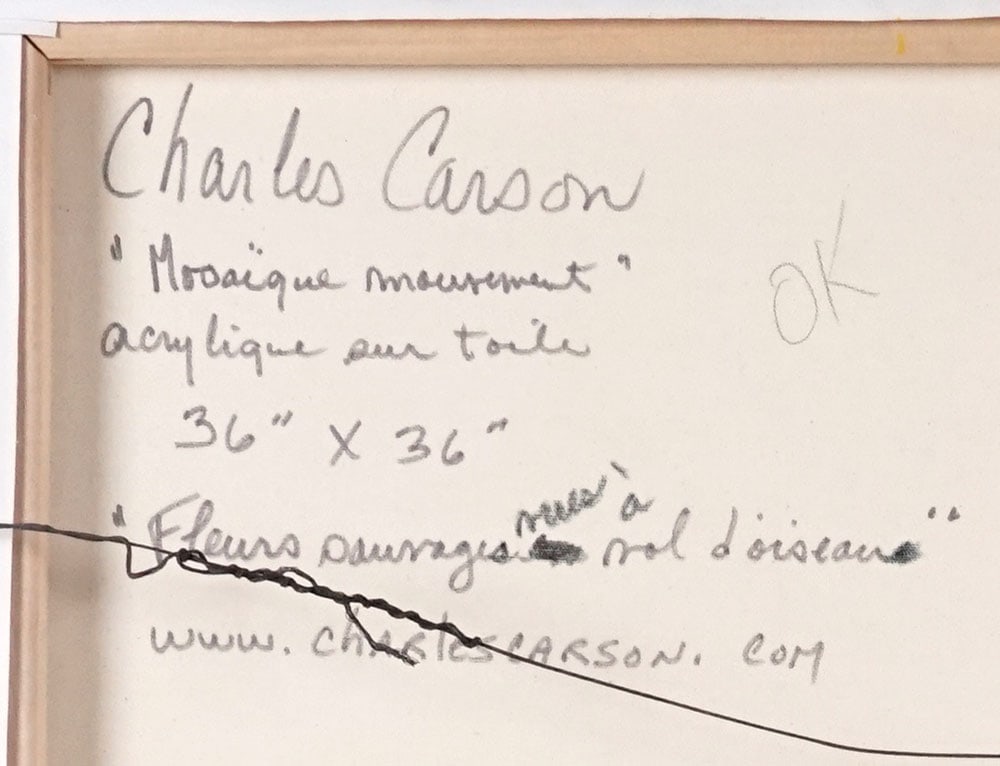 Charles Carson
"Mosaïque mouvement"
acrylique sur toile
OK
36" X 36"
"Fleurs sauvages vues à vol d'oiseau"
www.charlescarson.com